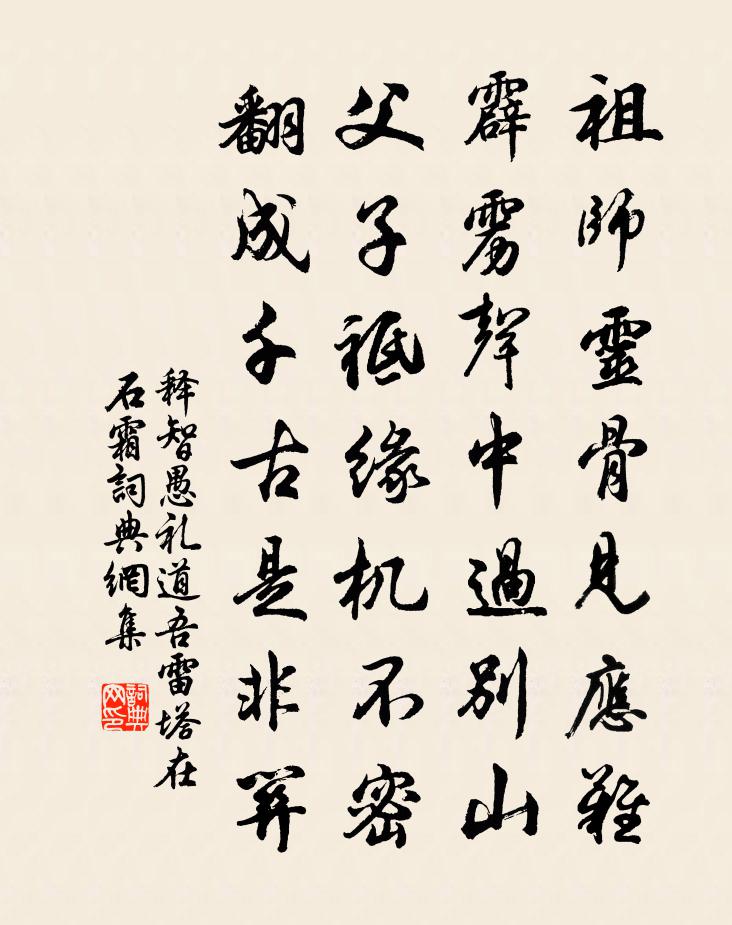 祖師靈骨見應難
霹雳聲中過別山
父子祗緣机不密
翻成千古是非關
释智愚礼道吾雷塔在
石霜詞典網集
詞典
网印